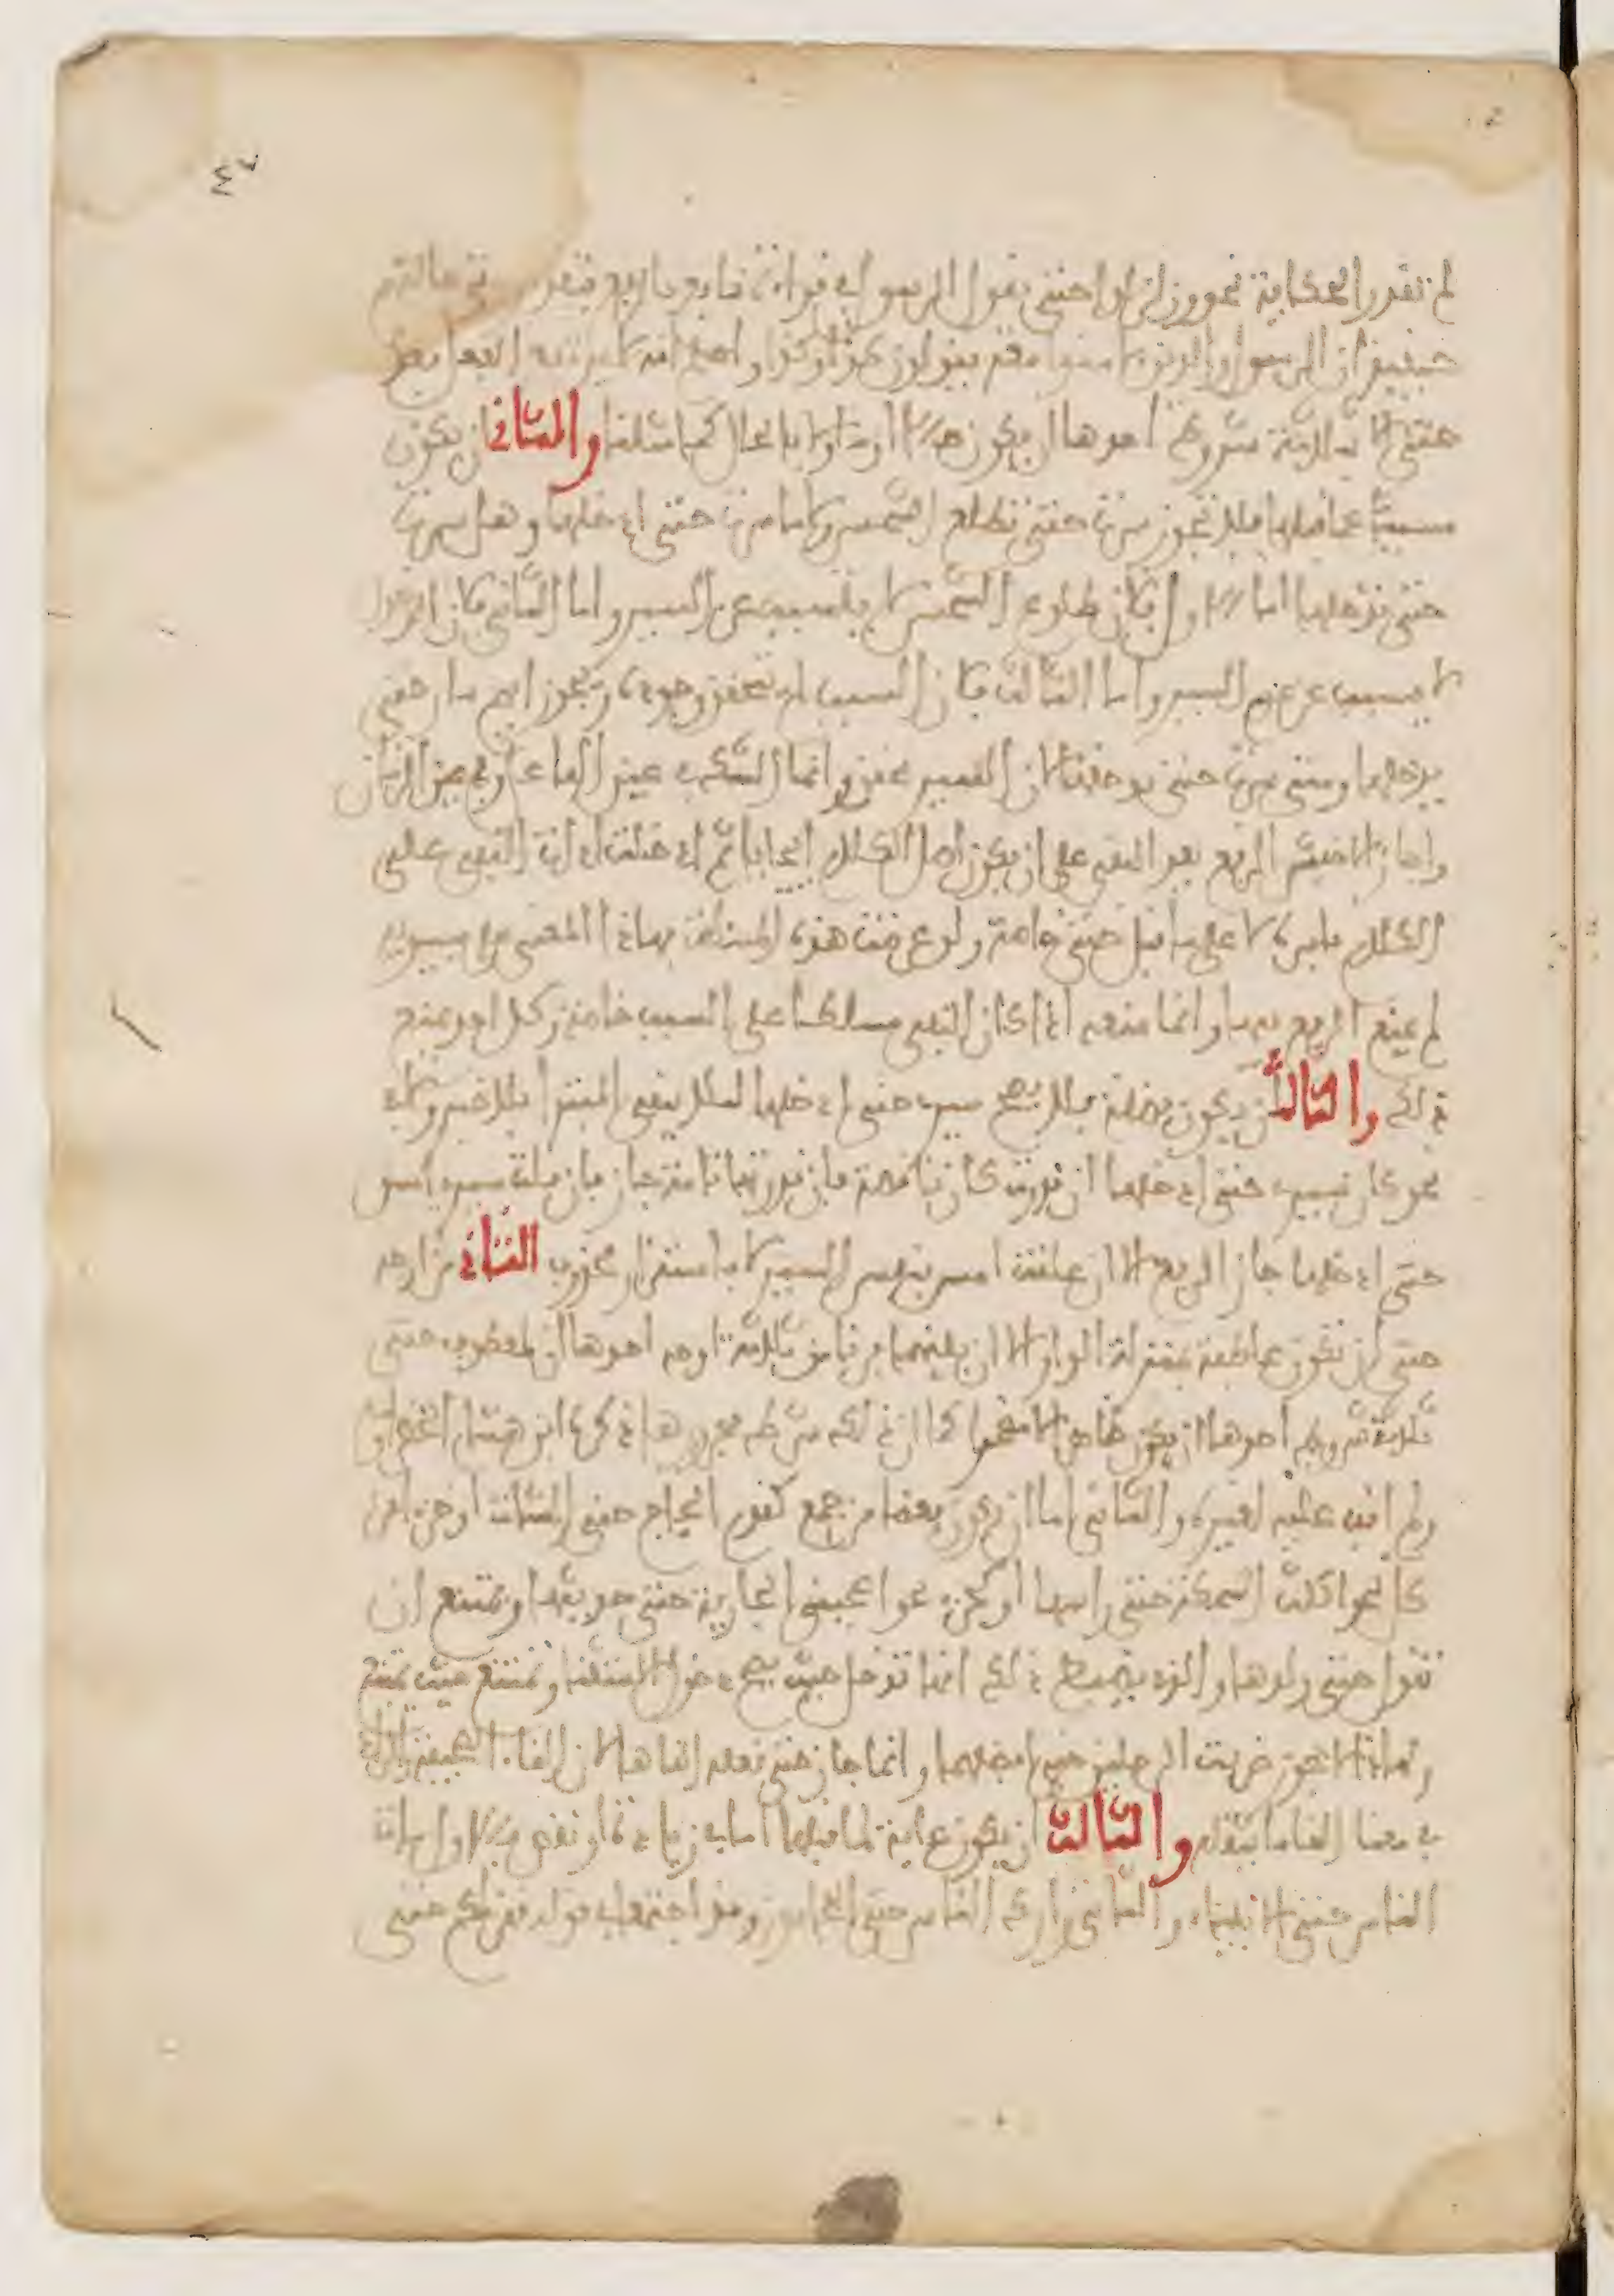 ٤٧
لم تقدر الحكاية نحو وزلزلوا حتى يقول الرسول في قراءة نافع بالرفع بتقدير حتى حالتهم
حينئذ ان الرسول والذين ءامنوا معه يقولون كذا وكذا واعلم انه لا يرتفع الفعل بعد
حتى الا بثلاثة شروط احدها ان يكون حالا او مؤولا بالحال كما مثلنا والثاني ان يكون
مسببا عما قبلها فلا يجوز سرت حتى تطلع الشمس ولا ما سرت حتى ادخلها وهل سرت
حتى تدخلها اما الاول فلان طلوع الشمس لا يتسبب عن السير واما الثاني فلان الدخول
لا يتسبب عن عدم السير واما الثالث فلان السبب لم يتحقق وجوده ويجوز ايهم سار حتى
يدخلها ومتى سرت حتى تدخلها لان السير محقق وانما الشك في عين الفاعل وفي عين الزمان
واجاز الاخفش الرفع بعد النفي على ان يكون اصل الكلام ايجابا ثم ادخلت اداة النفي على
الكلام باسره لا على ما قبل حتى خاصة ولو عرضت هذه المسئلة بهاذا المعنى على سيبويه
لم يمنع الرفع فيها وانما منعه اذا كان النفي مسلطا على السبب خاصة وكل احد يمنع
ذلك والثالث ان يكون فضلة فلا يصح سيري حتى ادخلها لئلا يبقى المبتدا بلا خبر ولا في
نحو كان سيري حتى ادخلها ان قدرت كان ناقصة فان قدرتها تامة جاز فان قلت سيري امس
حتى ادخلها جاز الرفع الا ان علقت امس بنفس السير لا باستقرار محذوف الثاني من اوجه
حتى ان تكون عاطفة بمنزلة الواو الا ان بينهما فرقا من ثلاثة اوجه احدها ان لمعطوف حتى
ثلاثة شروط احدها ان يكون ظاهرا لا مضمرا كما ان ذلك شرط مجرورها ذكره ابن هشام الخضراوي
ولم اقف عليه لغيره والثاني اما ان يكون بعضا من جمع كقدم الحجاج حتى المشاة او جزءا من
كل نحو اكلت السمكة حتى راسها او كجزء نحو اعجبتني الجارية حتى حديثها ويمتنع ان
تقول حتى ولدها والذي يضبط ذلك انها تدخل حيث يصح دخول الاستثناء وتمتنع حيث يمتنع
ولهاذا لا يجوز ضربت الرجلين حتى افضلهما وانما جاز حتى نعله القاها لان القاء الصحيفة والزاد
في معنا القا ما يثقله والثالث ان يكون غاية لما قبلها اما في زيادة او نقص فالاول مات
الناس حتى الانبياء والثاني زارك الناس حتى الحجامون وقد اجتمعا في قوله قهرناكم حتى